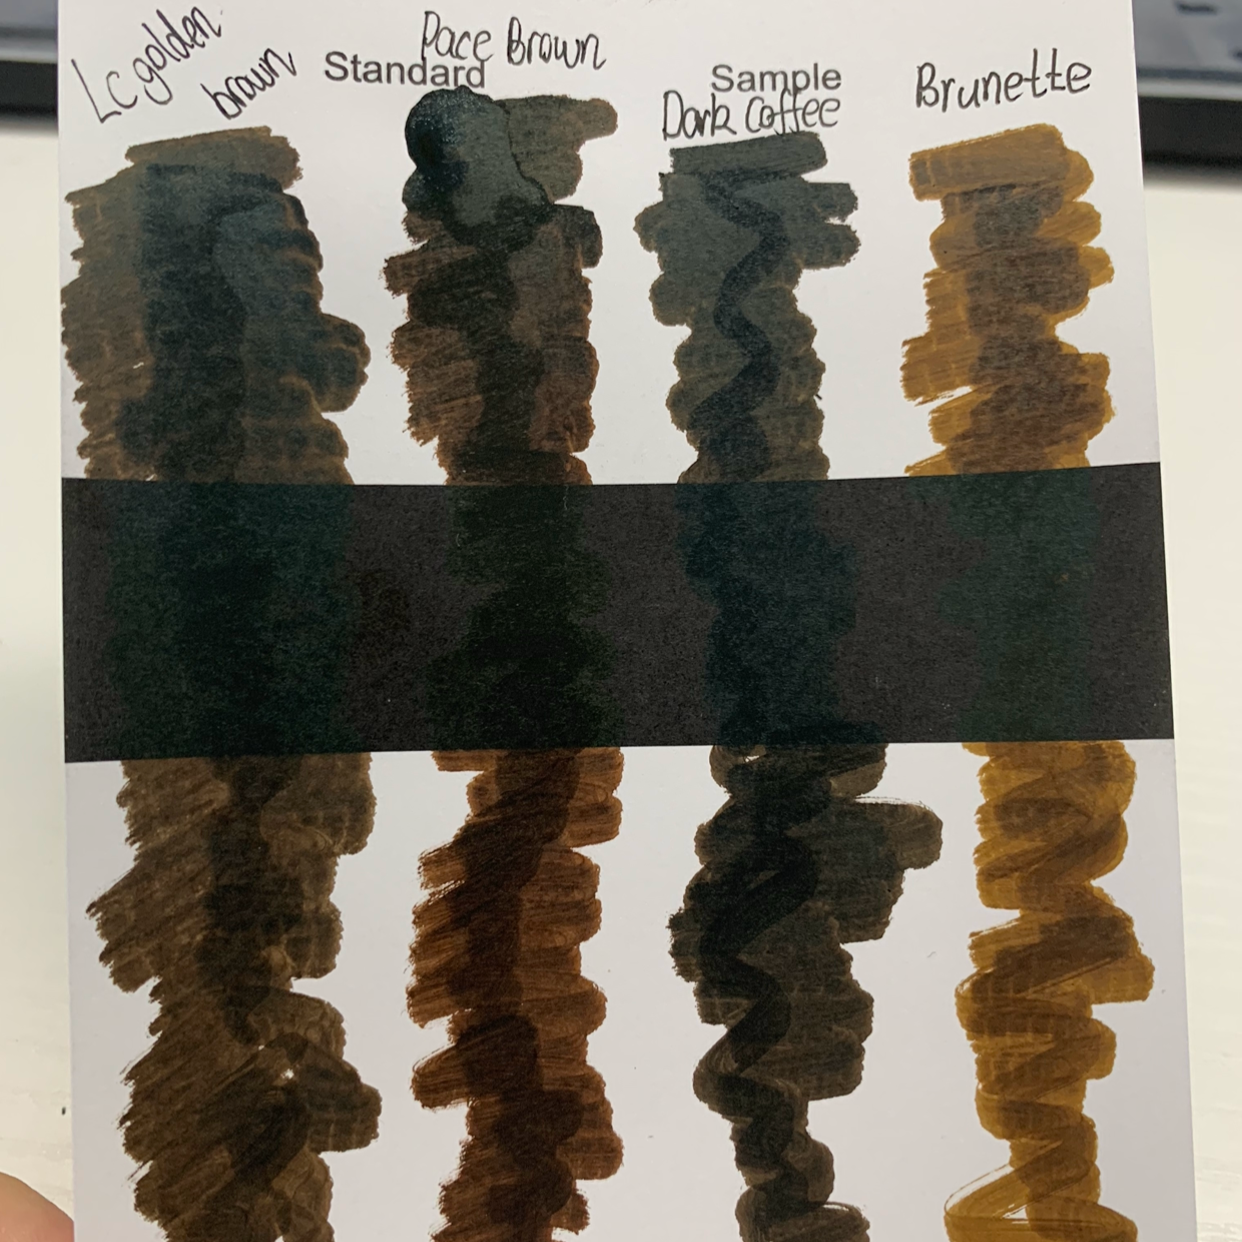 Lc golden
brown
Pace Brown
Standard
Sample
Dark Coffee
Brunette